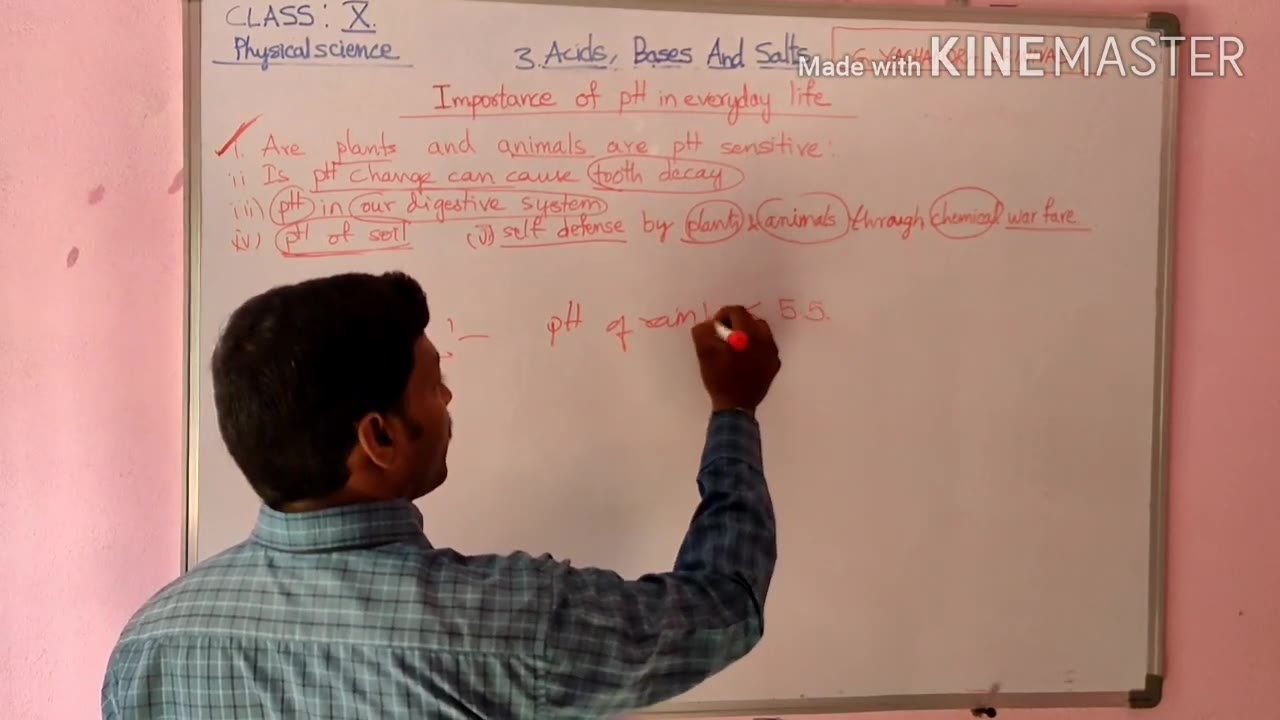 CLASS: X.
Physical science
3. Acids, Bases And Salts
Made with KINEMASTER
Importance of pH in everyday life
i. Are plants and animals are pH sensitive:
ii Is pH change can cause tooth decay
iii) pH in our digestive system
iv) pH of soil (v) self defense by plants & animals through chemical warfare.
pH of rain < 5.5.